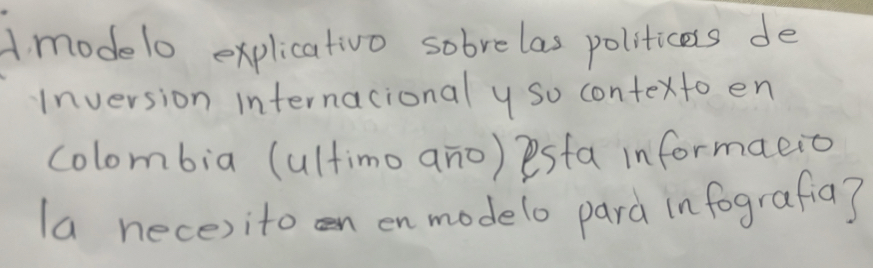 1. modelo explicativo sobre las politicas de
inversion internacional y su contexto en
colombia (ultimo año) Esta informacio
la necesito en en modelo para infografia?